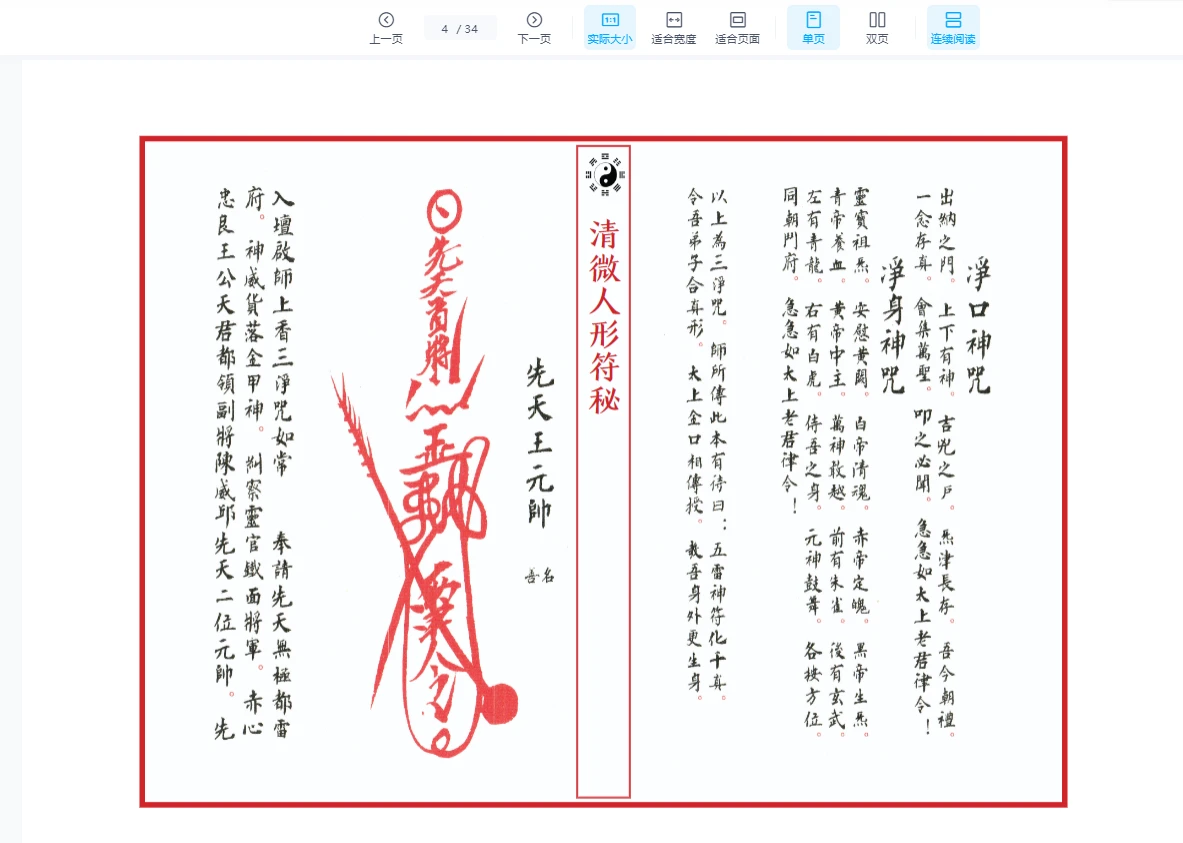 上一页
4 / 34
下一页
实际大小
适合宽度
适合页面
单页
双页
连续阅读
淨口神咒
出納之門。上下有神。吉兇之戶。炁津長存。吾今朝禮。
一念存真。會集萬聖。叩之必聞。急急如太上老君律令！
淨身神咒
靈寶祖炁。安慰黃闕。白帝清魂。赤帝定魄。黑帝生炁。
青帝養血。黃帝中主。萬神敢越。前有朱雀。後有玄武。
左有青龍。右有白虎。侍吾之身。元神鼓舞。各按方位。
同朝鬥府。急急如太上老君律令！
以上為三淨咒。師所傳此本有待曰：五雷神符化千真。
令吾弟子合真形。太上金口相傳授。教吾身外更生身。
清微人形符秘
先天王元帥
名
善
先天首將
令
入壇啟師上香三淨咒如常 奉請先天無極都雷
府。神威貨落金甲神。糾察靈官鐵面將軍。赤心
忠良王公天君都領副將陳威邱先天二位元帥。先